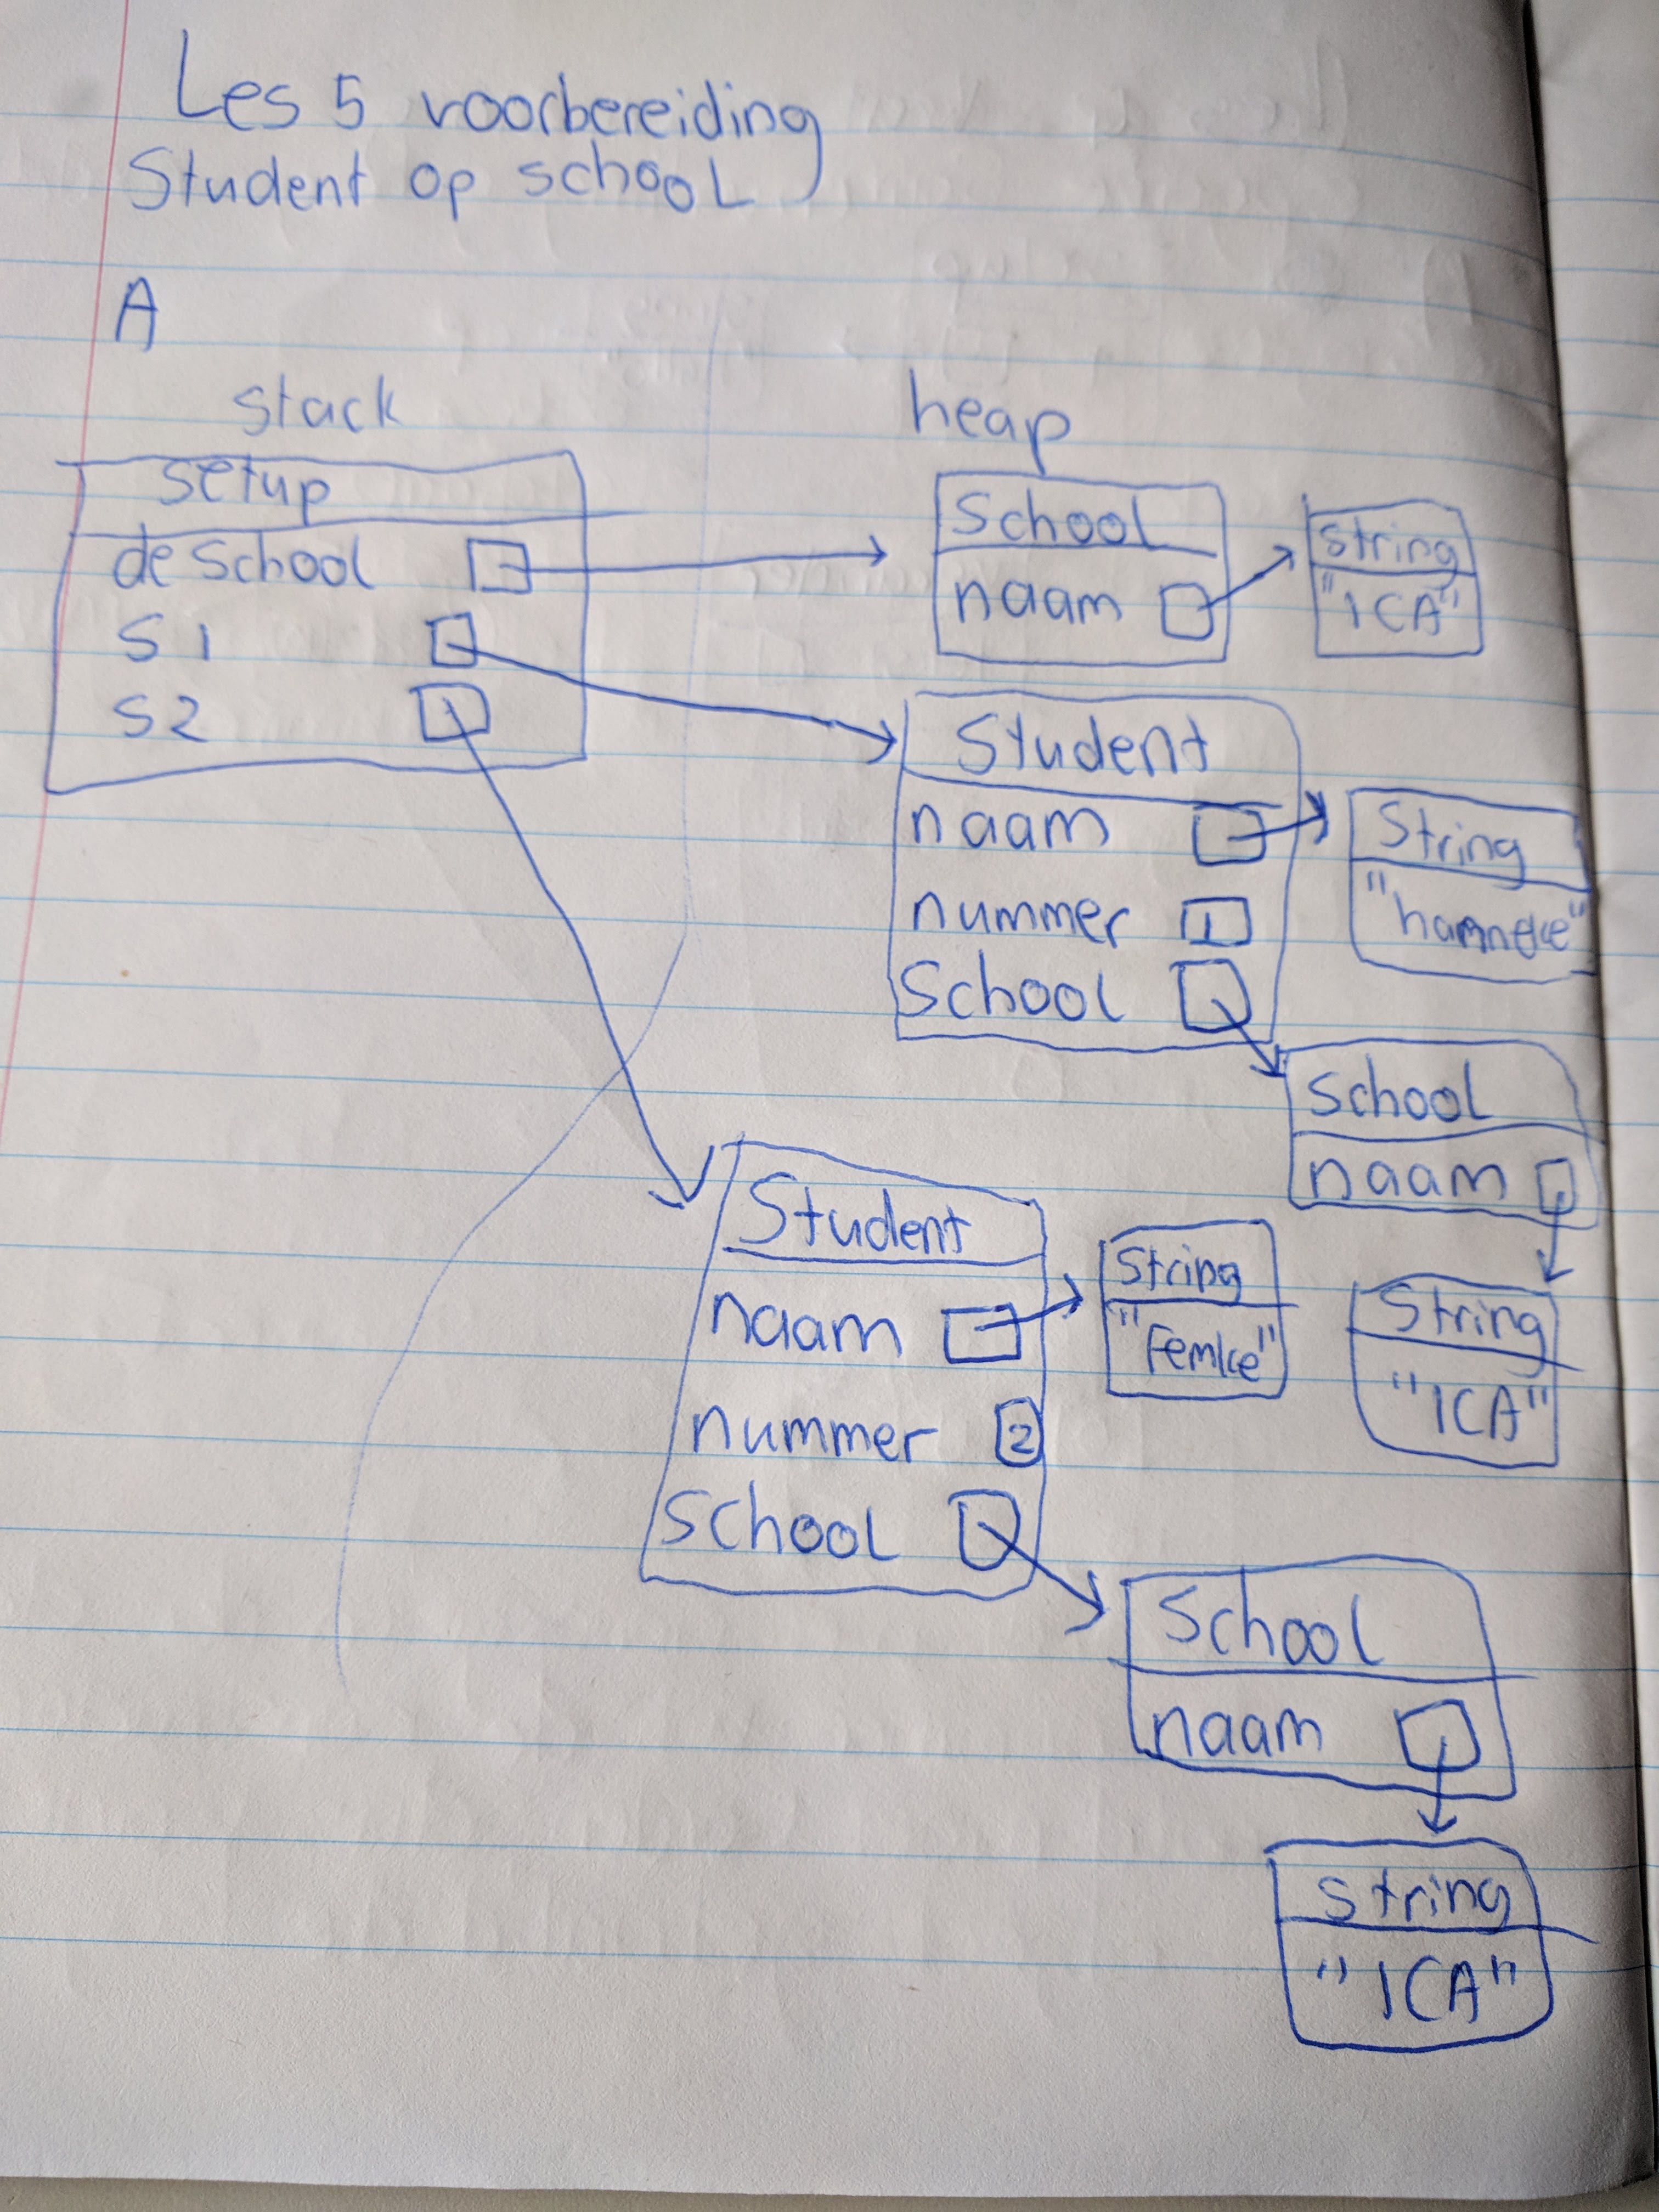 Les 5 voorbereiding
Student op school
A
stack
heap
setup
de school
S1
S2
School
naam
string
"ICA"
Student
naam
nummer 1
School
String
"hanneke"
School
naam
String
"ICA"
Student
naam
nummer 2
School
String
"Femke"
School
naam
String
"ICA"